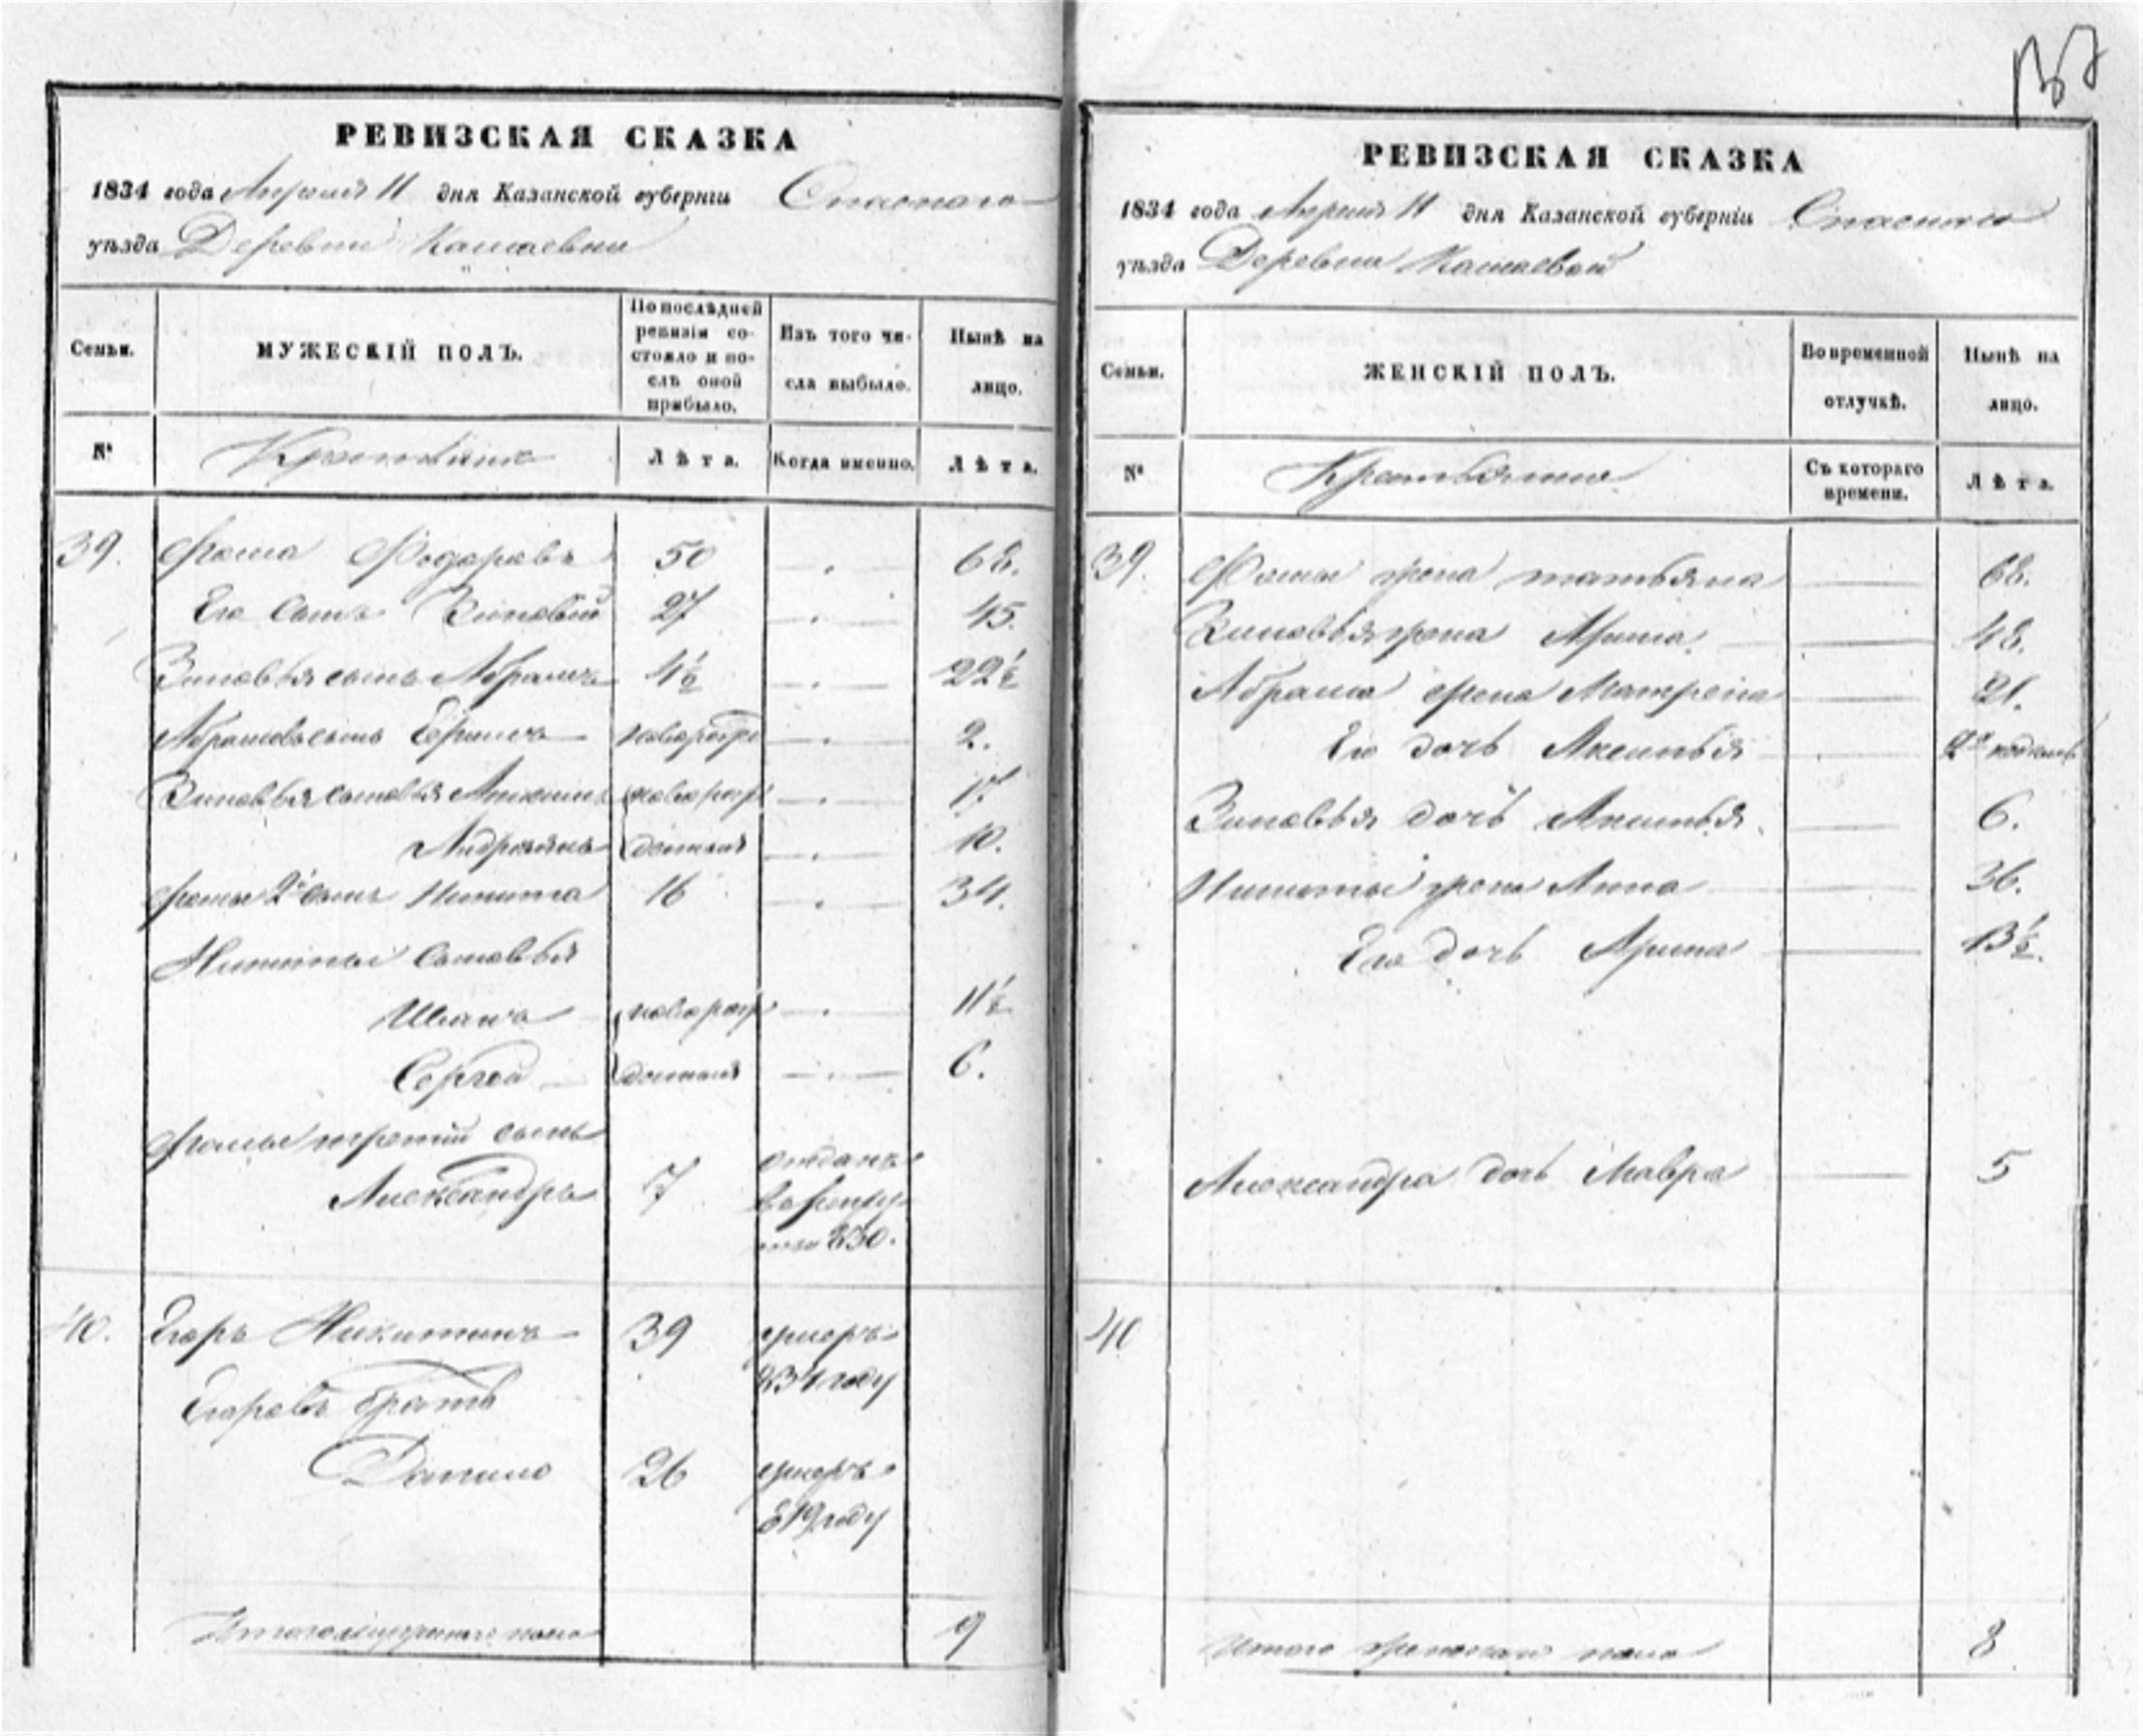 137
РЕВИЗСКАЯ СКАЗКА
1834 года Апреля 11 дня Казанской губернiи Спаскаго
уѣзда Деревни Кашаевки
Семьи.
МУЖЕСКIЙ ПОЛЪ.
По послѣдней ревизiи со-
стояло и по-
слѣ оной
прибыло.
Изъ того чи-
сла выбыло.
Нынѣ на
лицо.
№
Крестьяне
Лѣта.
Когда именно.
Лѣта.
39. Фома Фодоровъ 50 68.
Его сынъ Зиновiй 27 45.
Зиновья сынъ Абрамъ 4½ 22½
Абрамовъ сынъ Ефимъ новорожде 2.
Зиновья сыновья новорож 17.
Андреянъ денныя 10.
Фомы 2й сынъ Никита 16 34.
Никиты сыновья
Иванъ новорож 11½
Сергей денныя 6.
Фомы третiй сынъ
Александръ 7 отданъ
въ рекру-
ты 830.
40. Егоръ Никитинъ 39 умеръ
834 году
Егоровъ братъ
Данило 26 умеръ
819 году
Итого мужеска пола 9
РЕВИЗСКАЯ СКАЗКА
1834 года Апреля 11 дня Казанской губернiи Спаскаго
уѣзда Деревни Кашаевой
Семьи.
ЖЕНСКIЙ ПОЛЪ.
Во временной
отлучкѣ.
Нынѣ на
лицо.
№
Крестьянки
Съ котораго
времени.
Лѣта.
39. Фомы жена татьяна 68.
Зиновья жена Арина 48.
Абрама жена Матрена 21.
Его дочь Аксинья
Зиновья дочь Аксинья 6.
Никиты жена Анна 36.
Его дочь Арина 13½.
Александра дочь Мавра 5
40
Итого женскаго пола 8